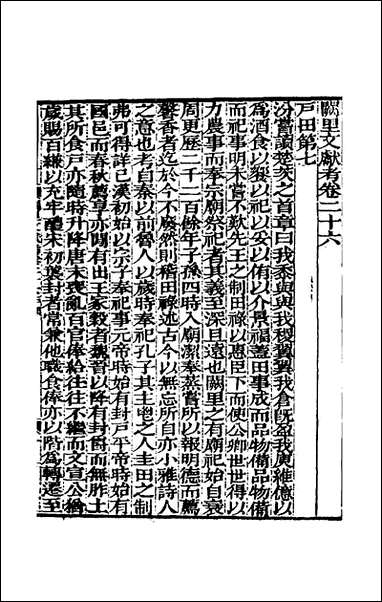 闕里文獻考卷二十六
戶田第七
汾嘗讀楚茨之首章曰我黍與與我稷翼翼我倉既盈我庾維億以
為酒食以饗以祀以妥以侑以介景福蓋田事成而品物備品物備
而祀事明未嘗不歎先王之制田祿以惠臣下而使公卿世世得以
力農事而奉宗廟祭祀者其義至深且遠也闕里之有廟祀始自衰
周更歷二千二百餘年子孫四時入廟潔奉蒸嘗所以報明德而薦
馨香者迄於今不廢然則稽田祿述古今以無忘所自亦小雅詩人
之意也考自秦以前魯人以歲時奉祀孔子其主鬯之人圭田之制
弗可得詳已漢初始以宗子奉祀事元帝時始有封戶平帝時始有
國邑而春秋饗享亦閒有出王家穀者魏晉以降有封爵而無胙土
其所食戶亦隨時升降唐末喪亂百官俸給往往不繼而文宣公猶
歲賜百縑以充牢醴宋初襲封者常兼他職食俸亦以階為轉遷至